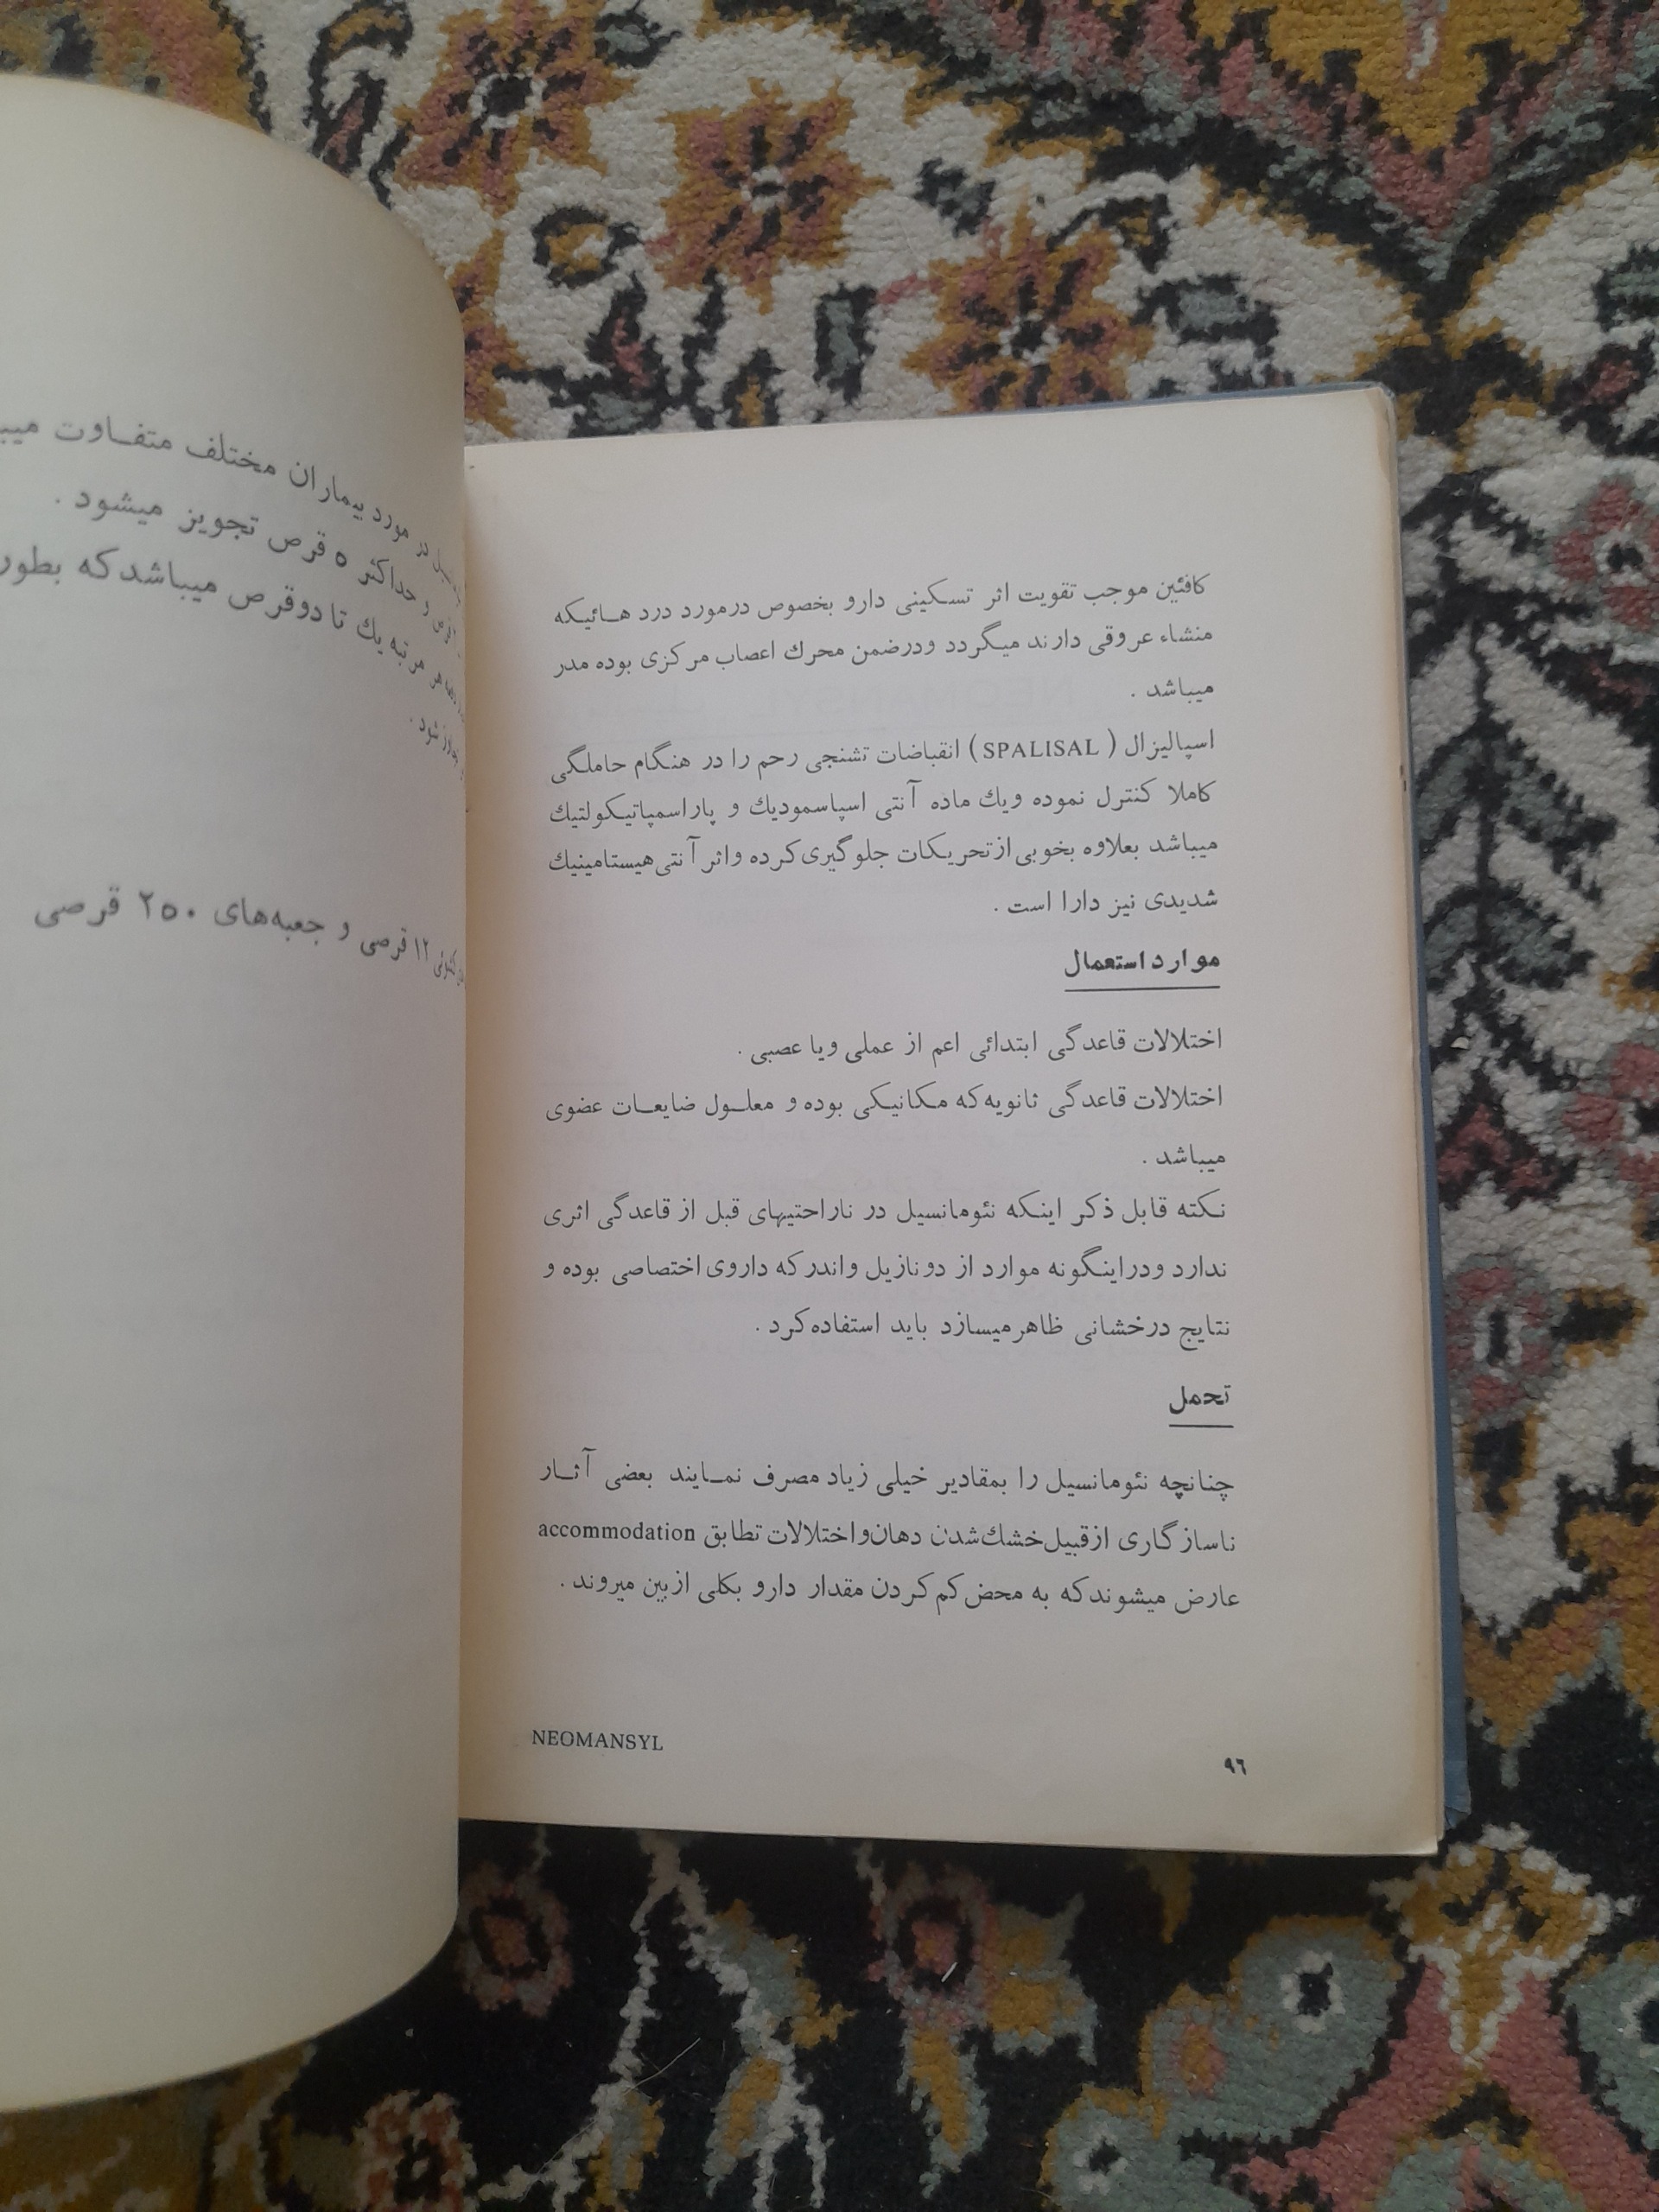 کافئین موجب تقویت اثر تسکینی دارو بخصوص درمورد درد هـائیکه
منشاء عروقی دارند میگردد ودرضمن محرك اعصاب مرکزی بوده مدر
میباشد .
اسپالیزال ( SPALISAL ) انقباضات تشنجی رحم را در هنگام حاملگی
کاملا کنترل نموده ویك ماده آنتی اسپاسمودیك و پاراسمپاتیکولتیك
میباشد بعلاوه بخوبی ازتحریکات جلوگیری کرده واثر آنتی هیستامینیك
شدیدی نیز دارا است .
موارد استعمال
اختلالات قاعدگی ابتدائی اعم از عملی ویا عصبی .
اختلالات قاعدگی ثانویه که مکانیکی بوده و معلـول ضایعـات عضوی
میباشد .
نکته قابل ذکر اینکه نئومانسیل در ناراحتیهای قبل از قاعدگی اثری
ندارد ودراینگونه موارد از دونازیل واندرکه داروی اختصاصی بوده و
نتایج درخشانی ظاهرمیسازد باید استفاده کرد .
تحمل
چنانچه نئومانسیل را بمقادیر خیلی زیاد مصرف نمـایند بعضی آثـار
ناسازگاری ازقبیل خشك شدن دهان واختلالات تطابق accommodation
عارض میشوند که به محض کم کردن مقدار دارو بکلی ازبین میروند .
NEOMANSYL
۹۶
در مورد بیماران مختلف متفـاوت
و حداکثر ۵ قرص تجویز میشود .
هر مرتبه یك تا دوقرص میباشد که بطور
شود .
۱۲ قرصی و جعبه‌های ۲۵۰ قرصی